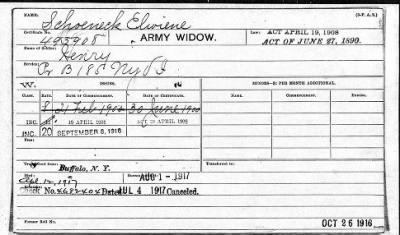 NAME: (3-F. A. S.)
Schoeneck Elviene
Certificate No. LAW: ACT APRIL 19, 1908
493908 ARMY WIDOW. ACT OF JUNE 27, 1890.
Name of Soldier:
Henry
Service:
Co B 185 NY V I
W. ISSUES. MINORS—$2 PER MONTH ADDITIONAL.
CLASS. RATE. DATE OF COMMENCEMENT. DATE OF CERTIFICATE.
8 21 Feb 1900 30 June 1900
INC. 12 19 APRIL 1908 ACT 19 APRIL 1908
INC. 20 SEPTEMBER 8, 1916
Transferred from: Transferred to:
Buffalo, N. Y.
AUG 1 - 1917
1917
Check No. Dated JUL 4 1917 Canceled.
Former Roll No. OCT 26 1916